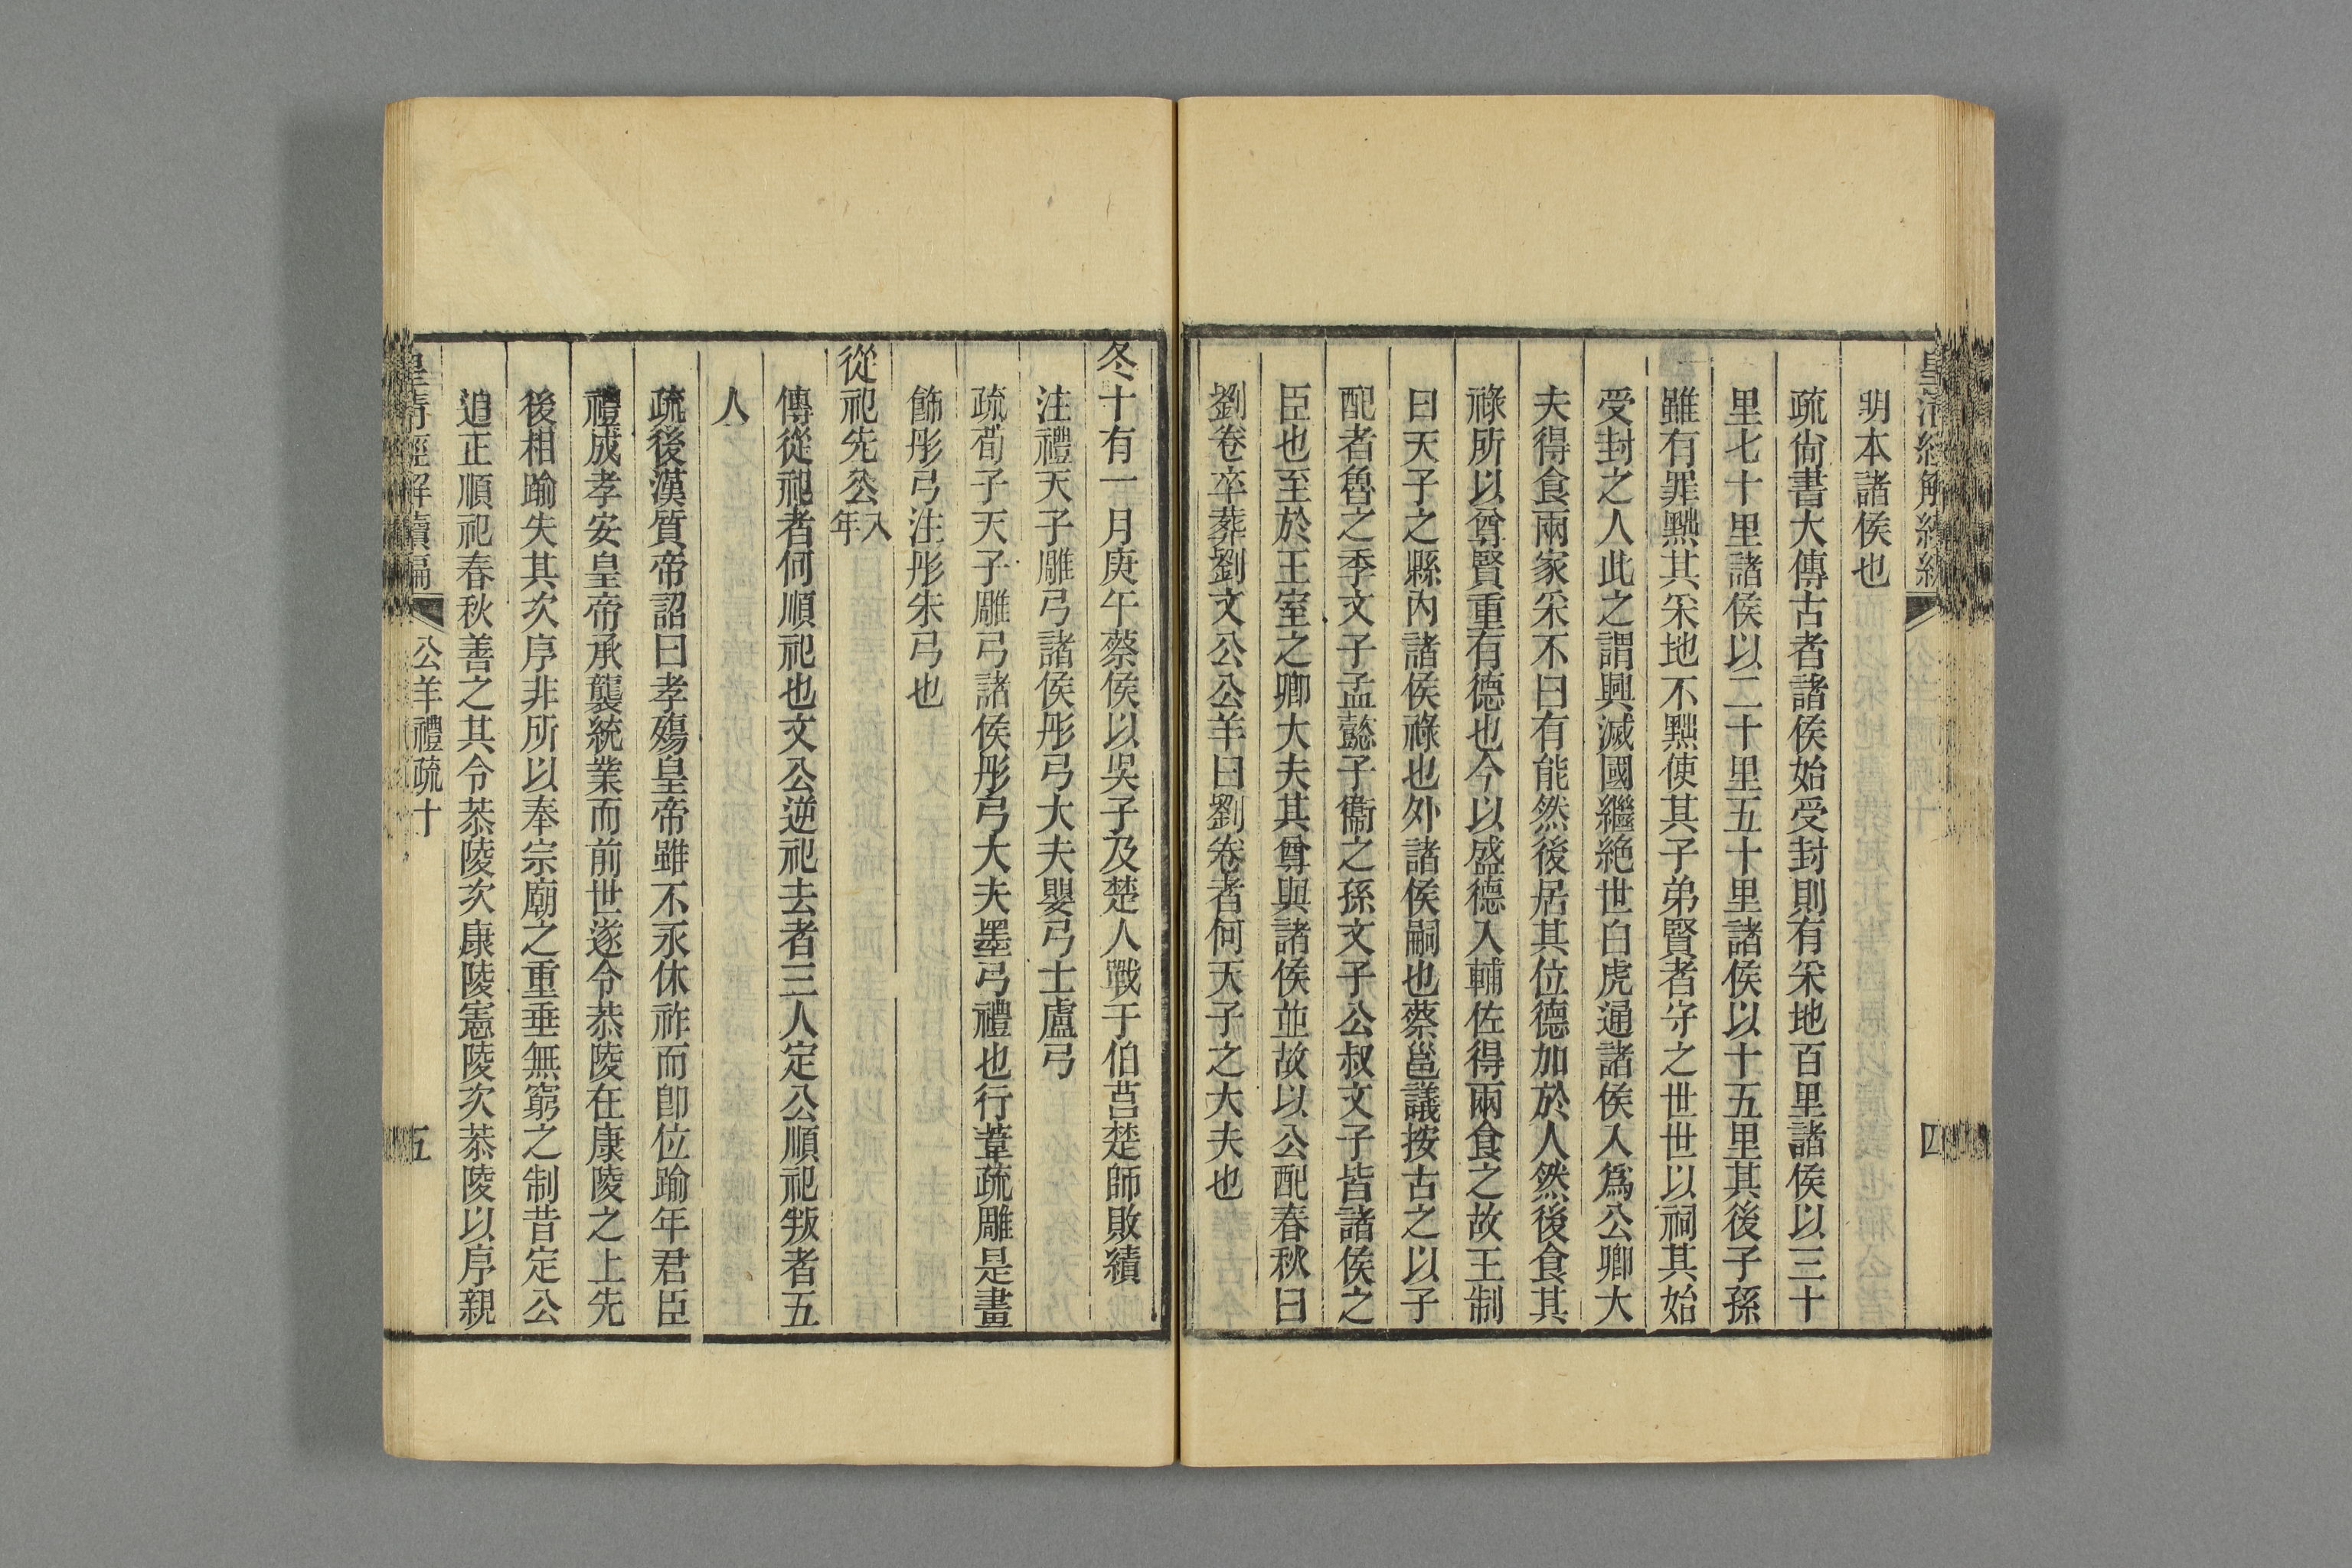 明本諸侯也
疏尙書大傳古者諸侯始受封則有采地百里諸侯以三十
里七十里諸侯以二十里五十里諸侯以十五里其後子孫
雖有罪黜其采地不黜使其子弟賢者守之世世以祠其始
受封之人此之謂興滅國繼絶世白虎通諸侯入爲公卿大
夫得食兩家采不曰有能然後居其位德加於人然後食其
祿所以尊賢重有德也今以盛德入輔佐得兩食之故王制
曰天子之縣內諸侯祿也外諸侯嗣也蔡邕議按古之以子
配者魯之季文子孟懿子衞之孫文子公叔文子皆諸侯之
臣也至於王室之卿大夫其尊與諸侯並故以公配春秋曰
劉卷卒葬劉文公公羊曰劉卷者何天子之大夫也
四
冬十有一月庚午蔡侯以吳子及楚人戰于伯莒楚師敗績
注禮天子雕弓諸侯彤弓大夫嬰弓士盧弓
疏荀子天子雕弓諸侯彤弓大夫墨弓禮也行葦疏雕是畫
飾彤弓注彤朱弓也
從祀先公八年
傳從祀者何順祀也文公逆祀去者三人定公順祀叛者五
人
疏後漢質帝詔曰孝殤皇帝雖不永休祚而卽位踰年君臣
禮成孝安皇帝承襲統業而前世遂令恭陵在康陵之上先
後相踰失其次序非所以奉宗廟之重垂無窮之制昔定公
追正順祀春秋善之其令恭陵次康陵憲陵次恭陵以序親
皇清經解續編 公羊禮疏十 五